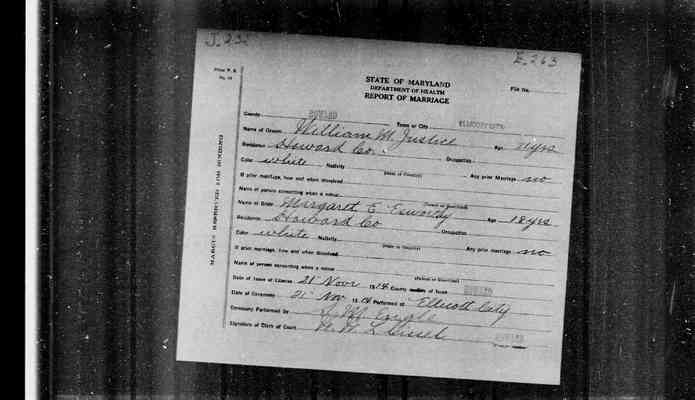 J. 23
E. 263
Form V. S.
STATE OF MARYLAND
DEPARTMENT OF HEALTH
REPORT OF MARRIAGE
File No.
MARGIN RESERVED FOR BINDING
County HOWARD Town or City ELLICOTT CITY
Name of Groom William M Justice Age 21 yrs
Residence Howard Co. Occupation
Color white Nativity (State or Country) Any prior Marriage no
If prior marriage, how and when dissolved
Name of person consenting when a minor (Parent or Guardian)
Name of Bride Margaret E Age 18 yrs
Residence Howard Co Occupation
Color white Nativity (State or Country) Any prior marriage no
If prior marriage, how and when dissolved
Name of person consenting when a minor (Parent or Guardian)
Date of Issue of License 21 Novr 1914 County of Issue HOWARD
Date of Ceremony 21 Nov 1914 Performed at Ellicott City
Ceremony Performed by
Signature of Clerk of Court W. W. L. Cissel HOWARD